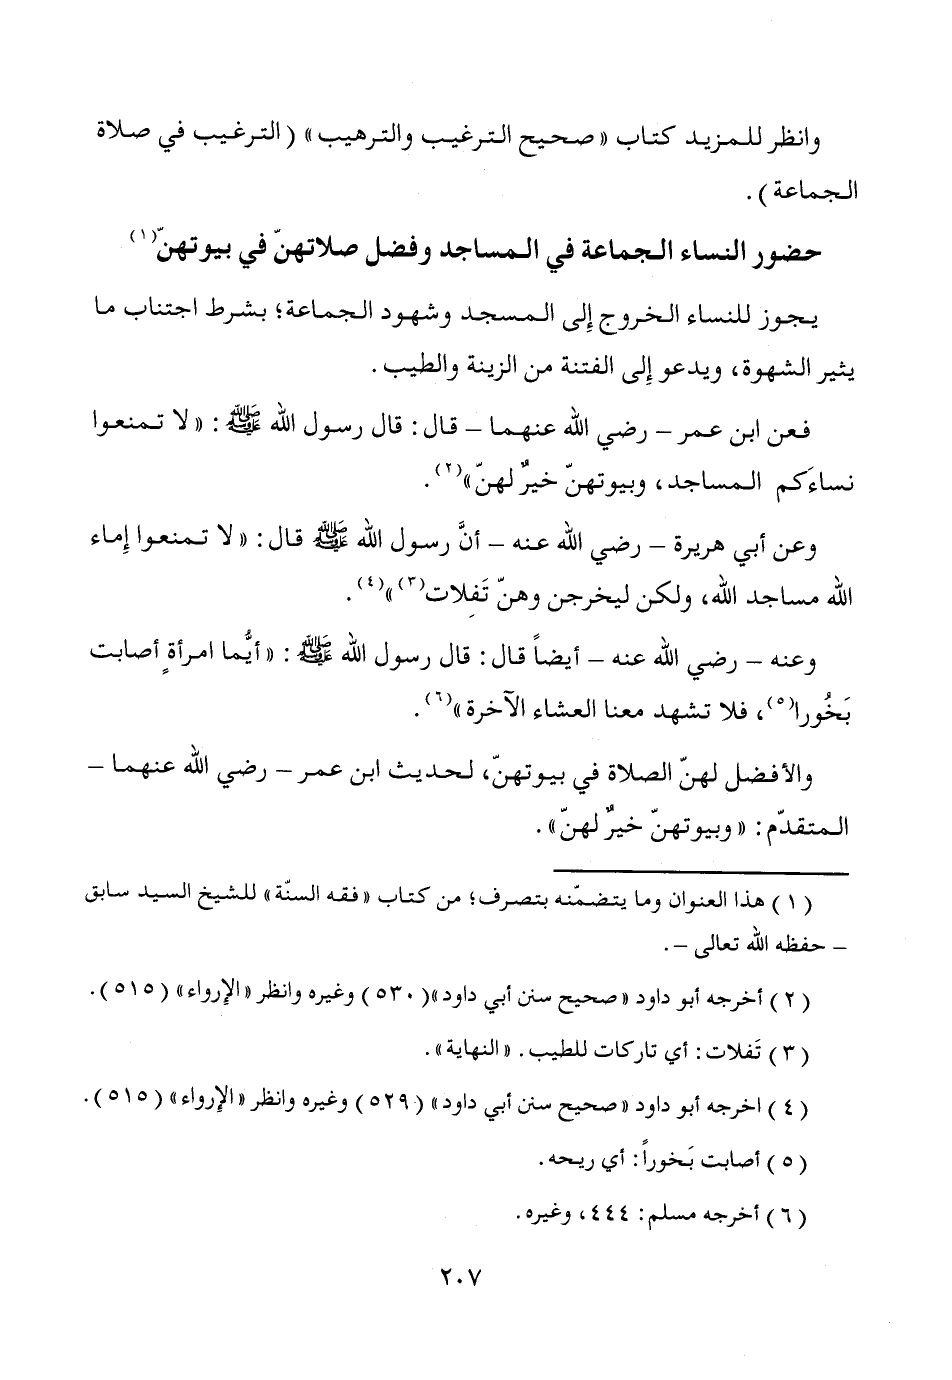 وانظر للمزيد كتاب «صحيح الترغيب والترهيب» (الترغيب في صلاة
الجماعة).
حضور النساء الجماعة في المساجد وفضل صلاتهنّ في بيوتهنّ(١)
يجوز للنساء الخروج إلى المسجد وشهود الجماعة؛ بشرط اجتناب ما
يثير الشهوة، ويدعو إلى الفتنة من الزينة والطيب.
فعن ابن عمر – رضي الله عنهما – قال: قال رسول الله ﷺ: «لا تمنعوا
نساءَكم المساجد، وبيوتهنّ خيرٌ لهنّ»(٢).
وعن أبي هريرة – رضي الله عنه – أنَّ رسول الله ﷺ قال: «لا تمنعوا إِماء
الله مساجد الله، ولكن ليخرجن وهنّ تَفِلات(٣)»(٤).
وعنه – رضي الله عنه – أيضاً قال: قال رسول الله ﷺ: «أيُّما امرأةٍ أصابت
بَخُورا(٥)، فلا تشهد معنا العشاء الآخرة»(٦).
والأفضل لهنّ الصلاة في بيوتهنّ، لحديث ابن عمر – رضي الله عنهما –
المتقدّم: «وبيوتهنّ خيرٌ لهنّ».
(١) هذا العنوان وما يتضمّنه بتصرف؛ من كتاب «فقه السنّة» للشيخ السيد سابق
– حفظه الله تعالى –.
(٢) أخرجه أبو داود «صحيح سنن أبي داود»(٥٣٠) وغيره وانظر «الإرواء» (٥١٥).
(٣) تَفلات: أي تاركات للطيب. «النهاية».
(٤) اخرجه أبو داود «صحيح سنن أبي داود» (٥٢٩) وغيره وانظر «الإرواء» (٥١٥).
(٥) أصابت بَخوراً: أي ريحه.
(٦) أخرجه مسلم: ٤٤٤، وغيره.
٢٠٧